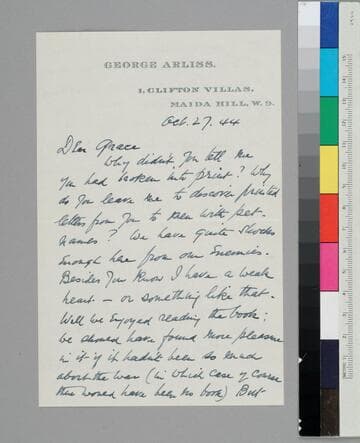 GEORGE ARLISS.
1, CLIFTON VILLAS,
MAIDA HILL, W. 9.
Oct. 27. 44
Dear Grace
Why didn't you tell me
you had broken into print? Why
do you leave me to discover printed
letters from you to men with pet-
names? We have quite shocks
enough here from our Enemies.
Besides you know I have a weak
heart — or something like that.
Well we enjoyed reading the book:
we should have found more pleasure
in it if it hadn't been so much
about the War (in which case of course
there would have been no book) But